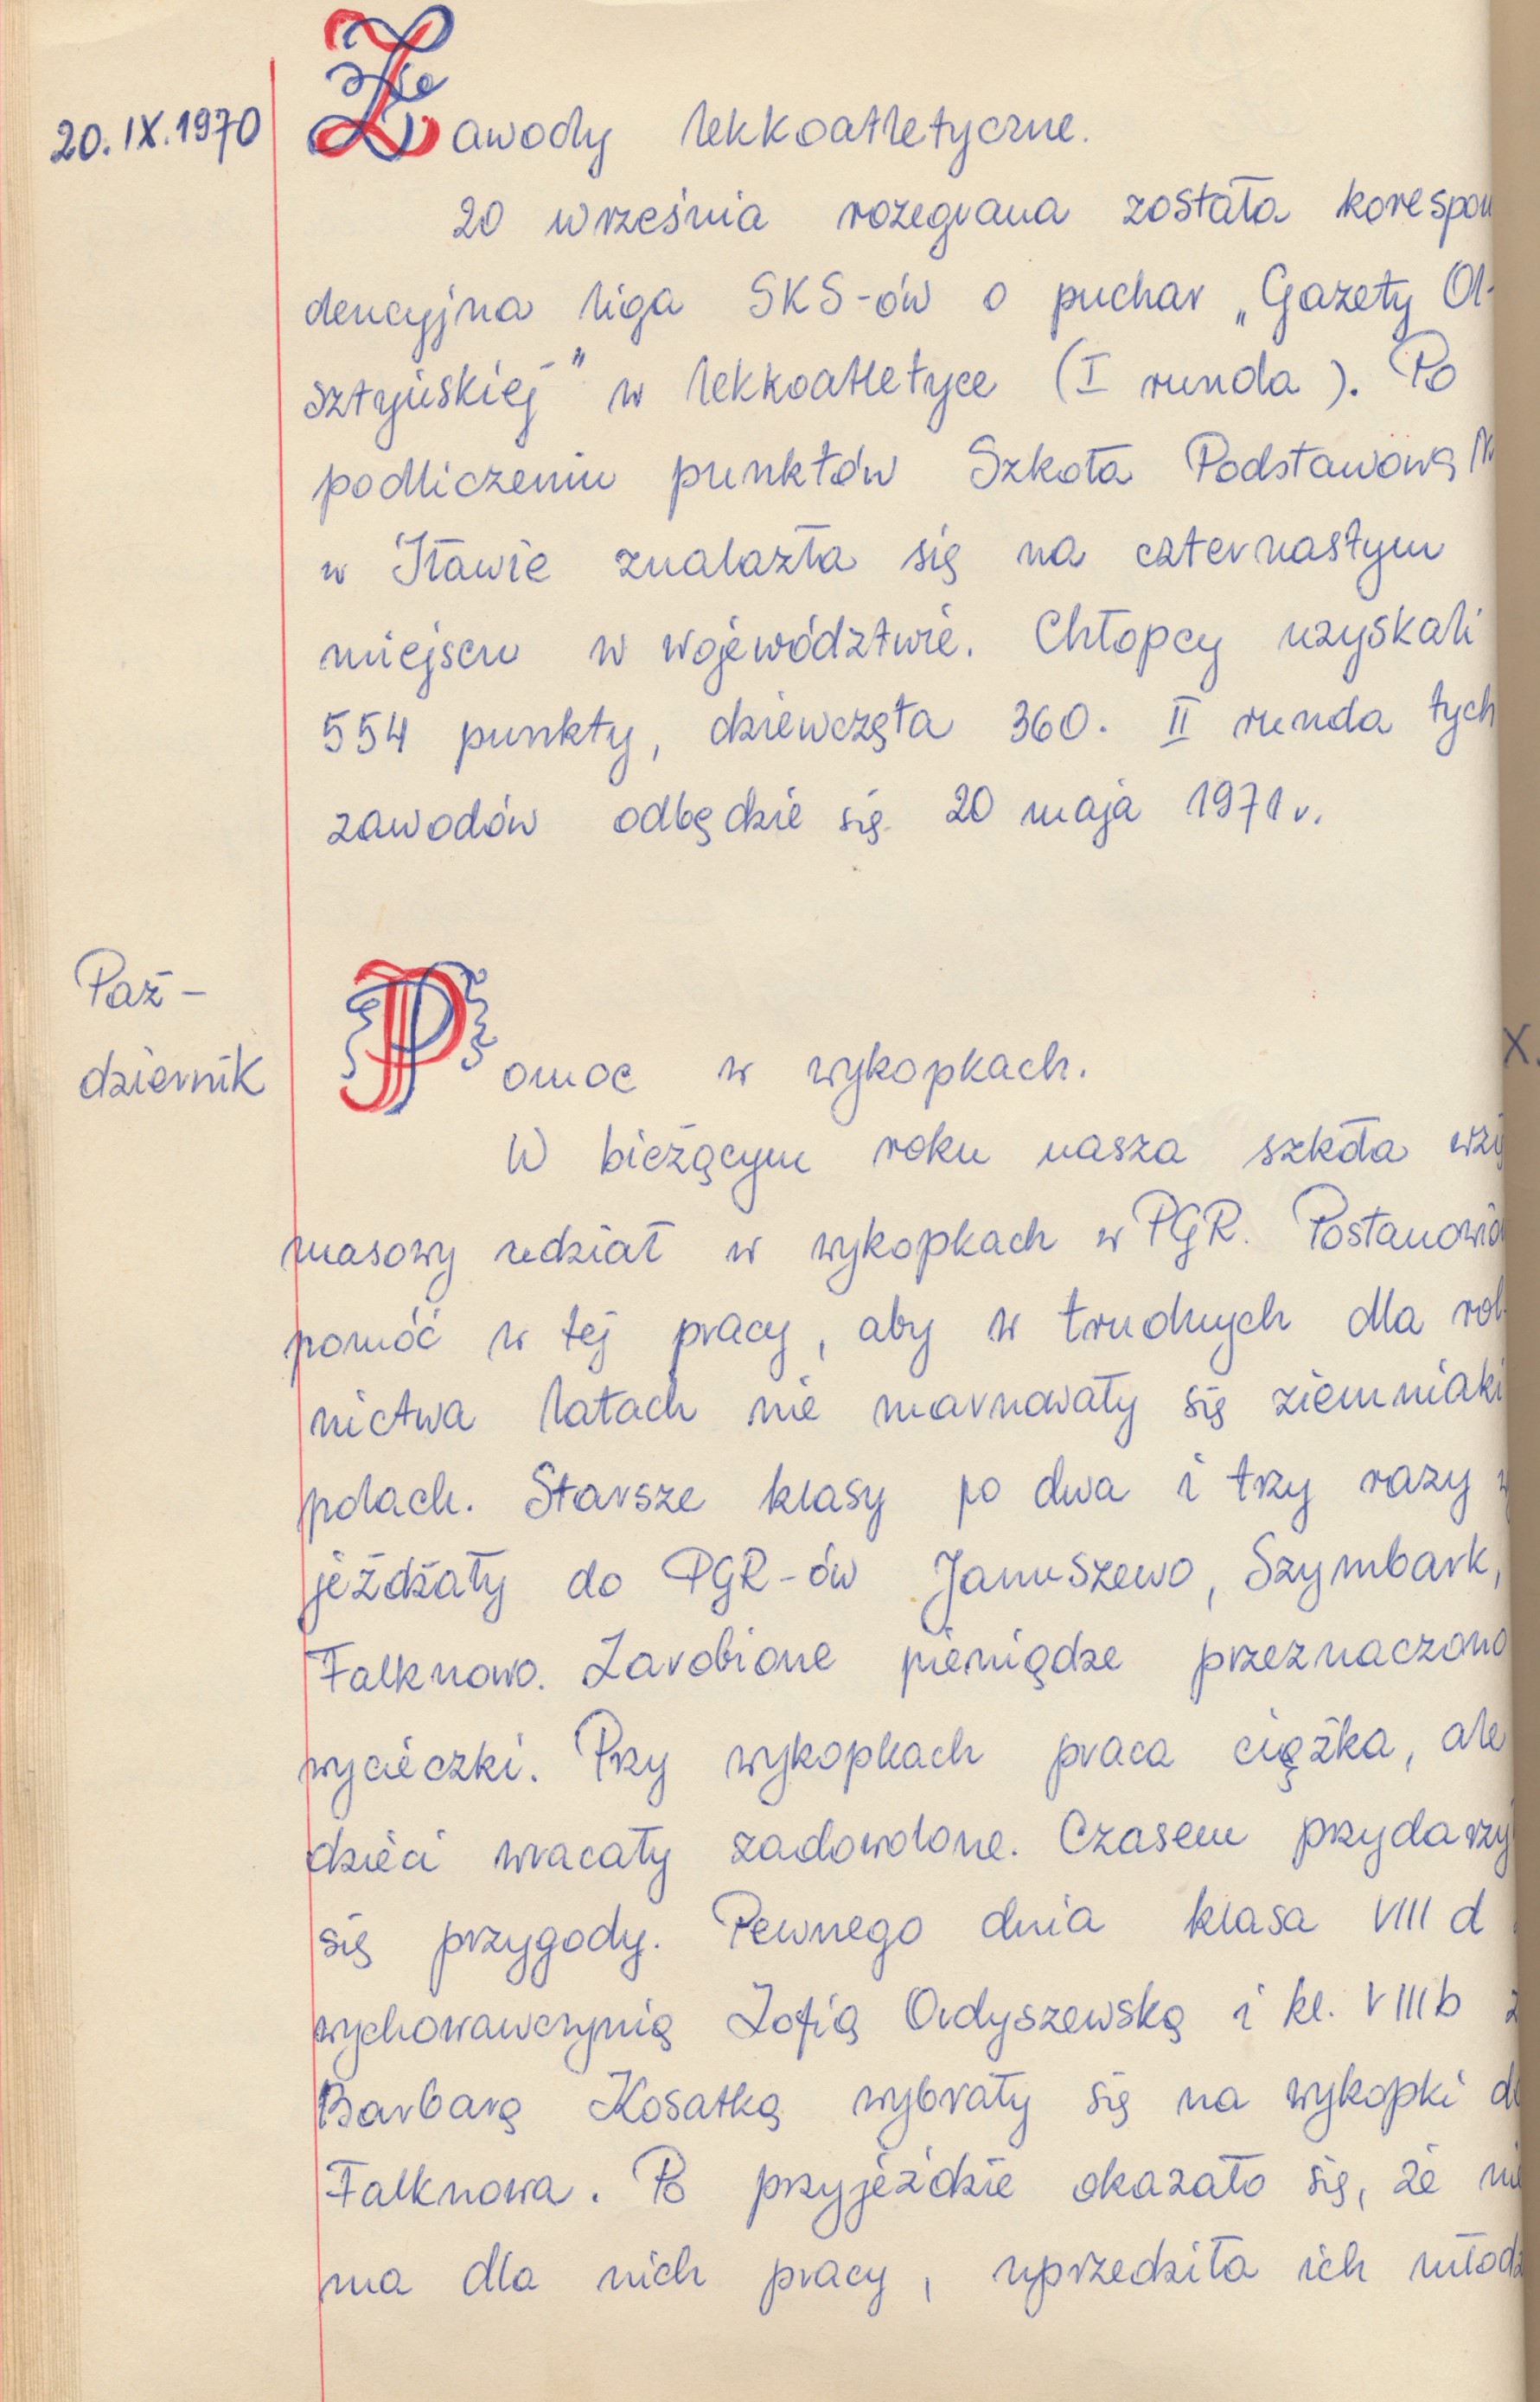 20.IX.1970
Zawody lekkoatletyczne.
20 września rozegrana została korespon
dencyjna liga SKS-ów o puchar „Gazety Ol-
sztyńskiej" w lekkoatletyce (I runda). Po
podliczeniu punktów Szkoła Podstawowa
w Iławie znalazła się na czternastym
miejscu w województwie. Chłopcy uzyskali
554 punkty, dziewczęta 360. II runda tych
zawodów odbędzie się 20 maja 1971 r.
Paź-
dziernik
Pomoc w wykopkach.
W bieżącym roku nasza szkoła wzi
masowy udział w wykopkach w PGR. Postanowio
pomóc w tej pracy, aby w trudnych dla rol
nictwa latach nie marnowały się ziemniaki
polach. Starsze klasy po dwa i trzy razy
jeżdżały do PGR-ów Januszewo, Szymbark,
Falknowo. Zarobione pieniądze przeznaczono
wycieczki. Przy wykopkach praca ciężka, ale
dzieci wracały zadowolone. Czasem przydarzy
się przygody. Pewnego dnia klasa VIII d
wychowawczynią Zofią Ordyszewską i kl. VIII b z
Barbarą Kosatką wybrały się na wykopki do
Falknowa. Po przyjeździe okazało się, że nie
ma dla nich pracy, uprzedziła ich młodz